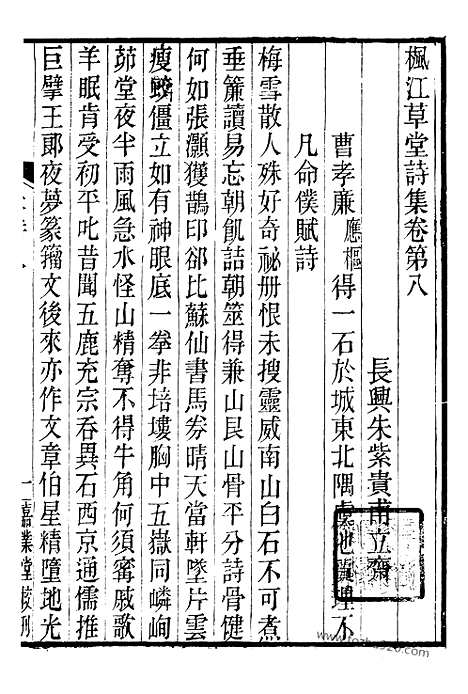 楓江草堂詩集卷第八
長興朱紫貴甫立齋
曹孝廉應樞得一石於城東北隅虞地置埋不
凡命僕賦詩
梅雪散人殊好奇祕册恨未搜靈威南山白石不可煮
垂簾讀易忘朝飢詰朝筮得兼山艮山骨平分詩骨健
何如張灝獲鵲印卻比蘇仙書馬券晴天當軒墜片雲
瘦蛟僵立如有神眼底一拳非培塿胸中五嶽同嶙峋
茆堂夜半雨風急水怪山精奪不得牛角何須甯戚歌
羊眠肯受初平叱昔聞五鹿充宗吞異石西京通儒推
巨擘王郎夜夢篆籀文後來亦作文章伯星精墮地光
一
嘉業堂校刊